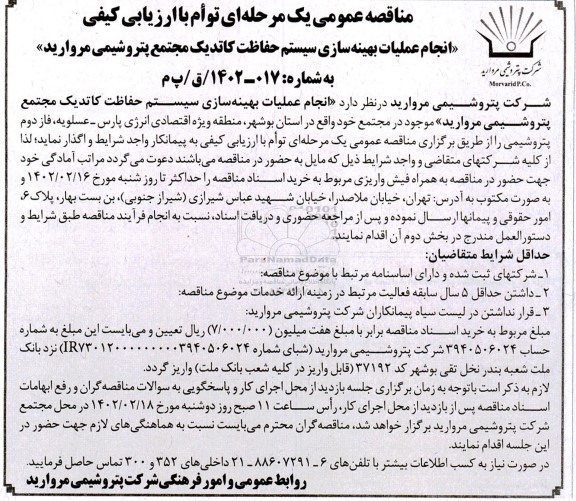 مناقصه عمومی یک مرحله‌ای توأم با ارزیابی کیفی
«انجام عملیات بهینه‌سازی سیستم حفاظت کاتدیک مجتمع پتروشیمی مروارید»
به شماره: ۰۱۷-۱۴۰۲/ق/پ م
شرکت پتروشیمی مروارید
Morvarid P.Co.
شرکت پتروشیمی مروارید درنظر دارد «انجام عملیات بهینه‌سازی سیستم حفاظت کاتدیک مجتمع
پتروشیمی مروارید» موجود در مجتمع خود واقع در استان بوشهر، منطقه ویژه اقتصادی انرژی پارس ـ عسلویه، فاز دوم
پتروشیمی را از طریق برگزاری مناقصه عمومی یک مرحله‌ای توأم با ارزیابی کیفی به پیمانکار واجد شرایط و اگذار نماید؛ لذا
از کلیه شرکتهای متقاضی و واجد شرایط ذیل که مایل به حضور در مناقصه می‌باشند دعوت می‌گردد مراتب آمادگی خود
جهت حضور در مناقصه به همراه فیش واریزی مربوط به خرید اسناد مناقصه را حداکثر تا روز شنبه مورخ ۱۴۰۲/۰۲/۱۶ و
به صورت مکتوب به آدرس: تهران، خیابان ملاصدرا، خیابان شهید عباس شیرازی (شیراز جنوبی)، بن بست بهار، پلاک۶،
امور حقوقی و پیمانها ارسال نموده و پس از مراجعه حضوری و دریافت اسناد، نسبت به انجام فرآیند مناقصه طبق شرایط و
دستورالعمل مندرج در بخش دوم آن اقدام نمایند.
حداقل شرایط متقاضیان:
۱ـ شرکتهای ثبت شده و دارای اساسنامه مرتبط با موضوع مناقصه:
۲ـ داشتن حداقل ۵ سال سابقه فعالیت مرتبط در زمینه ارائه خدمات موضوع مناقصه:
۳ـ قرار نداشتن در لیست سیاه پیمانکاران شرکت پتروشیمی مروارید:
مبلغ مربوط به خرید اسناد مناقصه برابر با مبلغ هفت میلیون (۷/۰۰۰/۰۰۰) ریال تعیین و می‌بایست این مبلغ به شماره
حساب ۳۹۴۰۵۰۶۰۲۴ شرکت پتروشیمی مروارید (شبای شماره IR۷۳۰۱۲۰۰۰۰۰۰۰۰۰۳۹۴۰۵۰۶۰۲۴) نزد بانک
ملت شعبه بندر نخل تقی بوشهر کد ۳۷۱۹۲ (قابل واریز در کلیه شعب بانک ملت) واریز گردد.
لازم به ذکر است باتوجه به زمان برگزاری جلسه بازدید از محل اجرای کار و پاسخگویی به سوالات مناقصه‌گران و رفع ابهامات
اسناد مناقصه پس از بازدید از محل اجرای کار، رأس ساعت ۱۱ صبح روز دوشنبه مورخ ۱۴۰۲/۰۲/۱۸ در محل مجتمع
شرکت پتروشیمی مروارید برگزار خواهد شد، مناقصه‌گران محترم می‌بایست نسبت به هماهنگی‌های لازم جهت حضور در
این جلسه اقدام نمایند.
در صورت نیاز به کسب اطلاعات بیشتر با تلفن‌های ۶ ـ ۸۸۶۰۷۲۹۱ ـ ۲۱ داخلی‌های ۳۵۲ و ۳۰۰ تماس حاصل فرمایید.
روابط عمومی و امور فرهنگی شرکت پتروشیمی مروارید
ParsNamadData